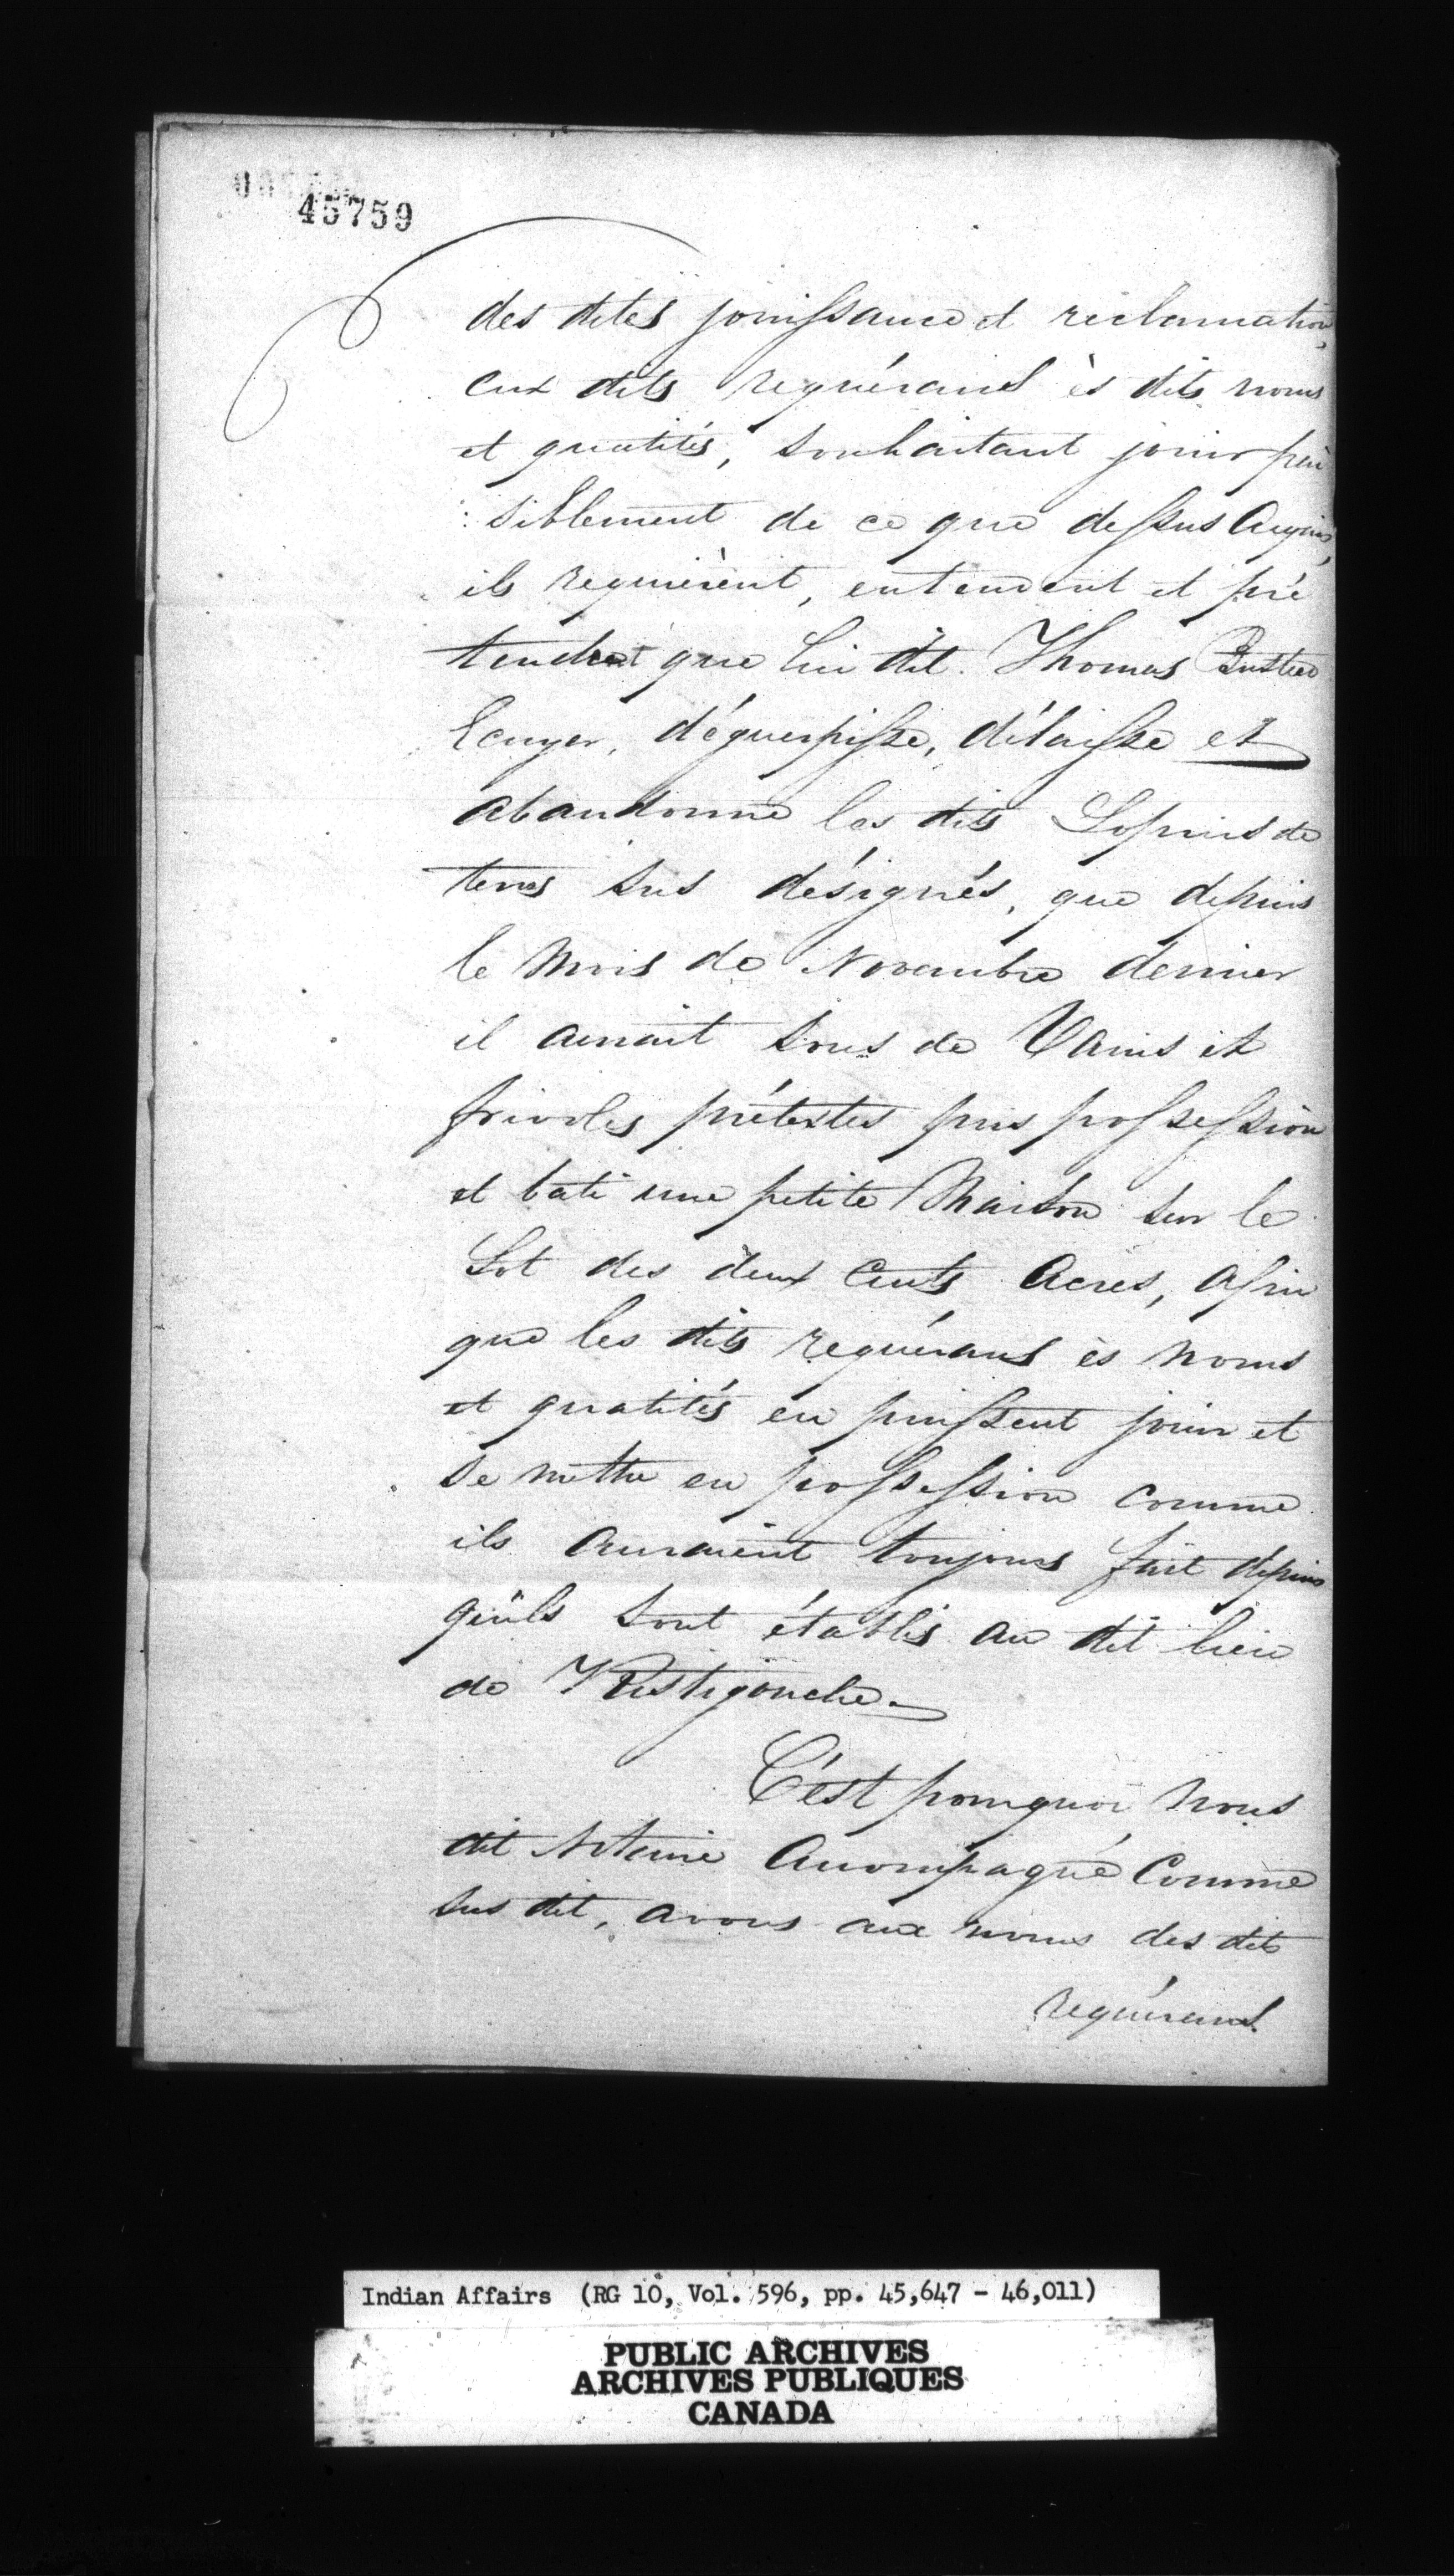 45759
des dites jouissance et réclamation,
eux dits requérans ès dits noms
et qualités, souhaitant jouir pai
: siblement de ce que dessus acquis,
ils requièrent, entendent et pré
tendent que lui dit Thomas Busteed
Ecuyer, déguerpisse, délaisse et
abandonne les dits Lopins de
terres sus désignés, que depuis
le mois de Novembre dernier
il aurait sous de Vains et
frivoles prétextes pris possession
et bati une petite Maison sur le
Lot des deux Cents Acres, afin
que les dits requérans ès noms
et qualités en puissent jouir et
se mettre en possession comme
ils auraient toujours fait depuis
qu'ils sont établis au dit lieu
de Ristigouche.
C'est pourquoi nous
dit Notaire Accompagné Comme
sus dit, avons aux noms des dits
requérans
Indian Affairs (RG 10, Vol. 596, pp. 45,647 - 46,011)
PUBLIC ARCHIVES
ARCHIVES PUBLIQUES
CANADA